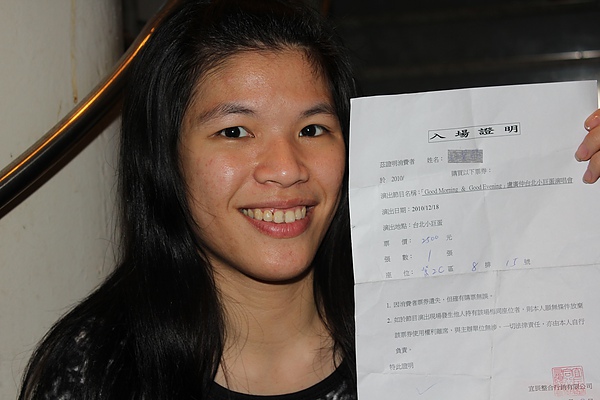 入場證明
茲證明消費者 姓名：
於 2010/ 購買以下票券：
演出節目名稱：「Good Morning & Good Evening」盧廣仲台北小巨蛋演唱會
演出日期：2010/12/18
演出地點：台北小巨蛋
票 價： 2500 元
張 數： 1 張
座 位： 2C 區 8 排 15 號
1. 因消費者票券遺失，但確有購票無誤。
2. 如於節目演出現場發生他人持有該場相同座位者，則本人願無條件放棄
該票券使用權利離席，與主辦單位無涉，一切法律責任，亦由本人自行
負責。
特此證明
宜辰整合行銷有限公司